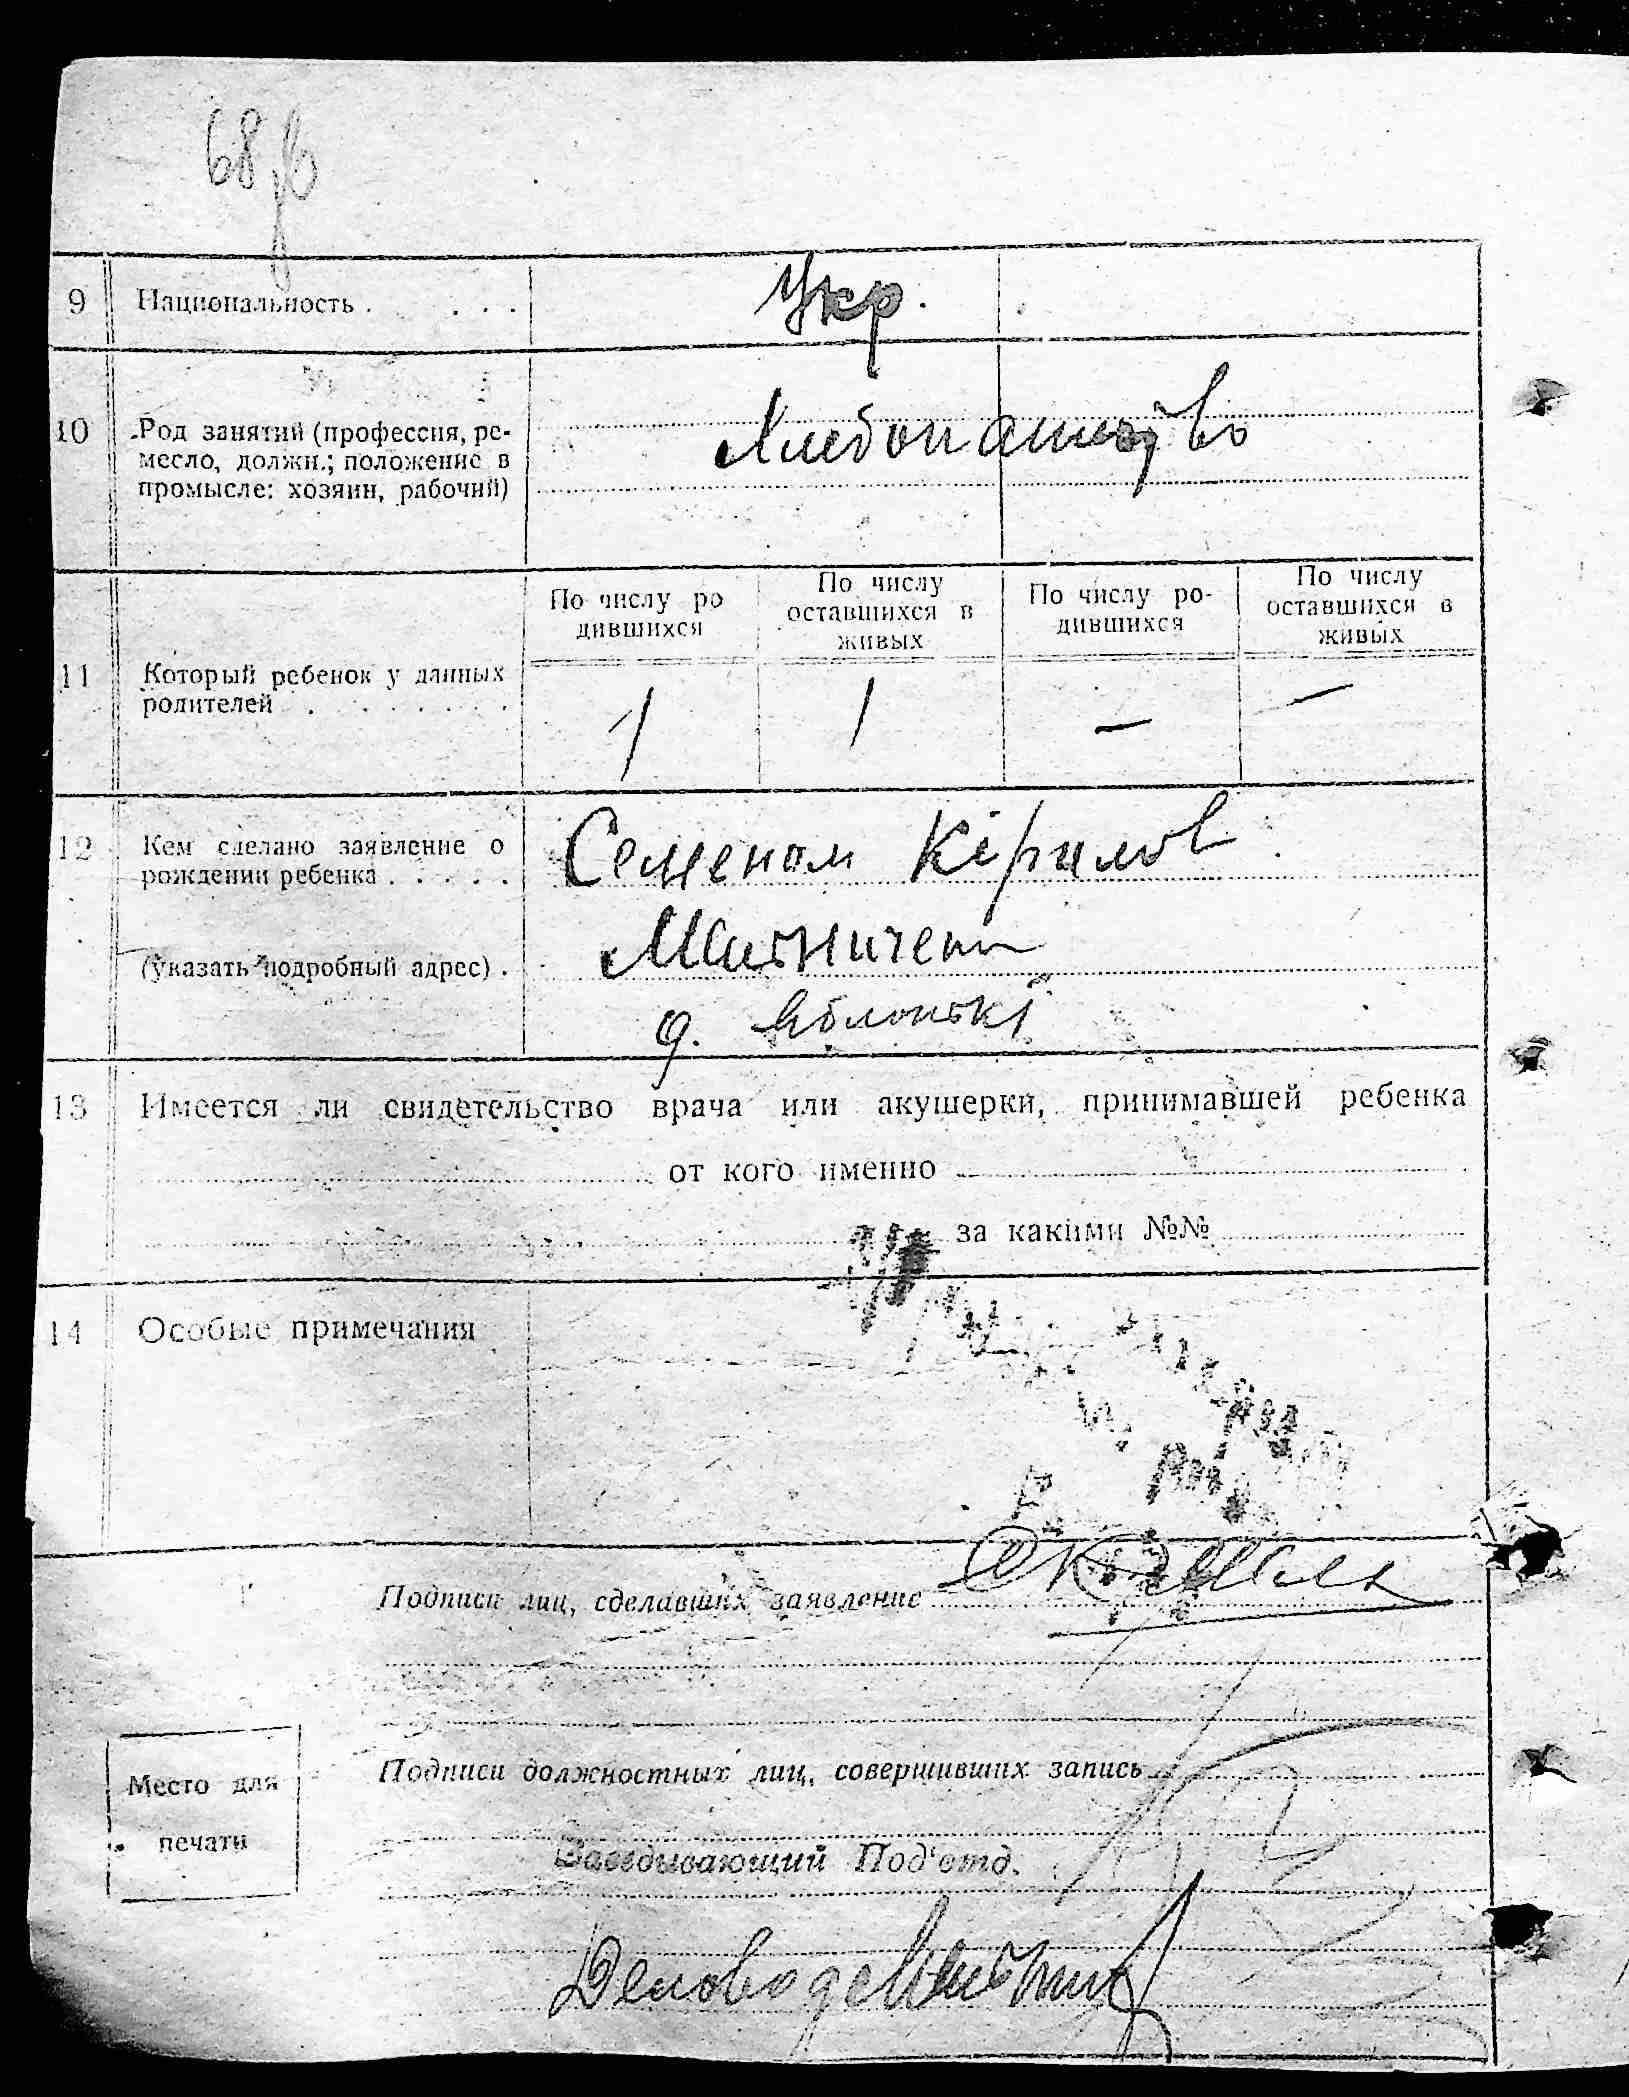 68
9 Национальность . . . . Укр.
10 Род занятий (профессия, ре-
месло, должн.; положение в
промысле: хозяин, рабочий)
Хлебопашество
По числу ро
дившихся
По числу
оставшихся в
живых
По числу ро-
дившихся
По числу
оставшихся в
живых
11 Который ребенок у данных
родителей . . . . . . .
1 1 — —
12 Кем сделано заявление о
рождении ребенка . . . . .
Семеном Кірилов
(указать подробный адрес) .
д.
13 Имеется ли свидетельство врача или акушерки, принимавшей ребенка
от кого именно
за какими №№
14 Особые примечания
Подписи лиц, сделавших заявление
Подписи должностных лиц, совершивших запись
Место для
печати
Заведывающий Под'отд.
Деловод